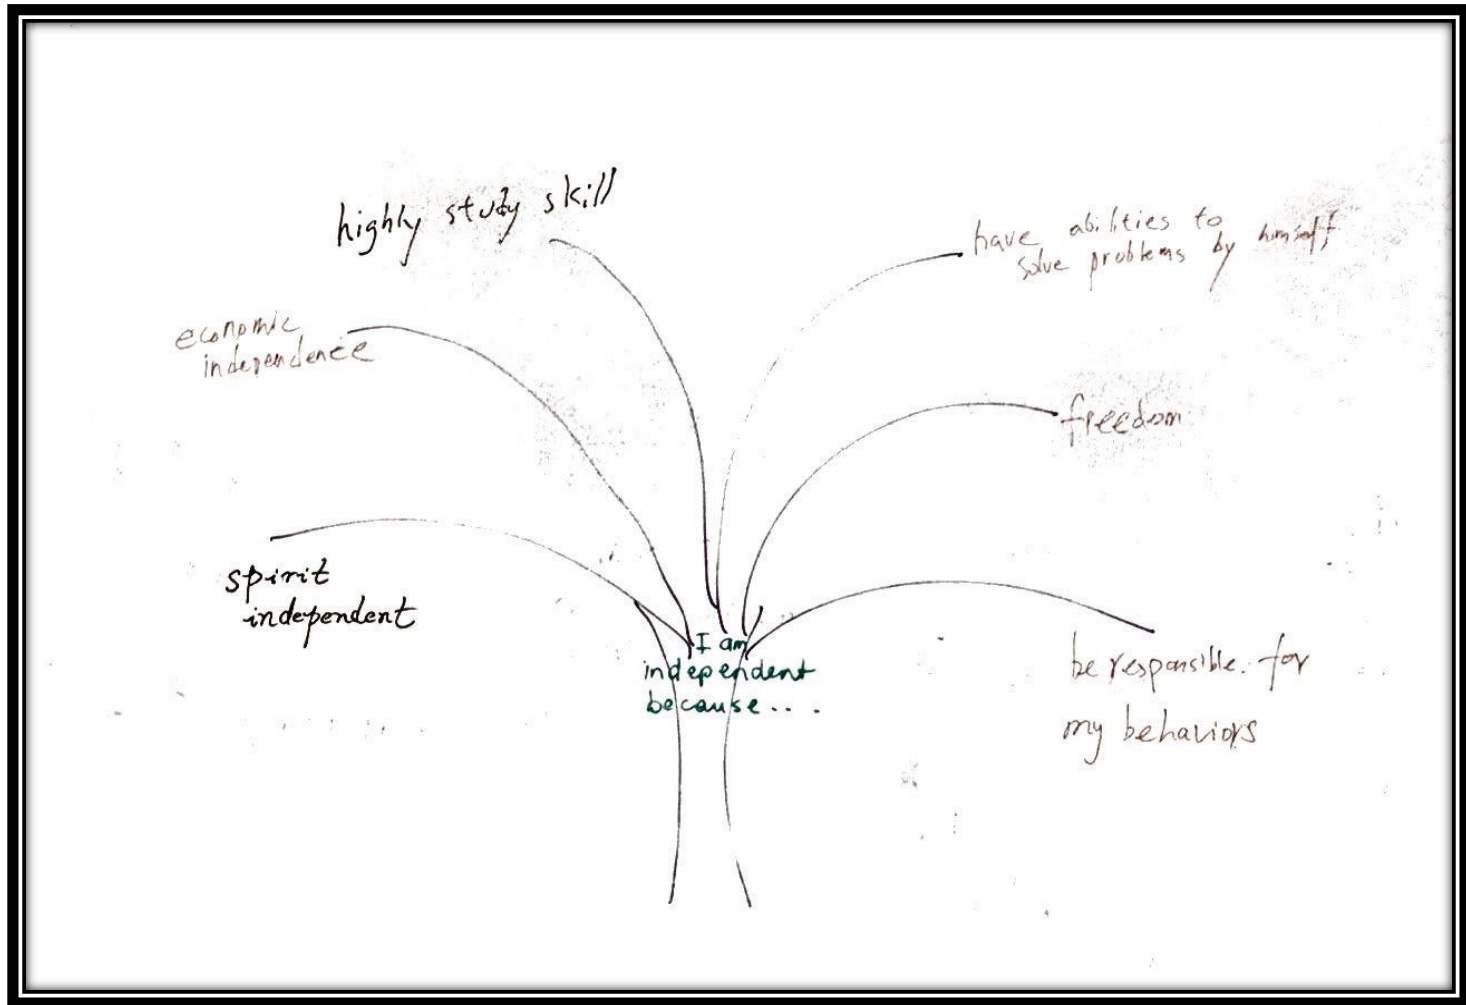 highly study skill
have abilities to
solve problems by himself
economic
independence
freedom
spirit
independent
I am
independent
because...
be responsible. for
my behaviors